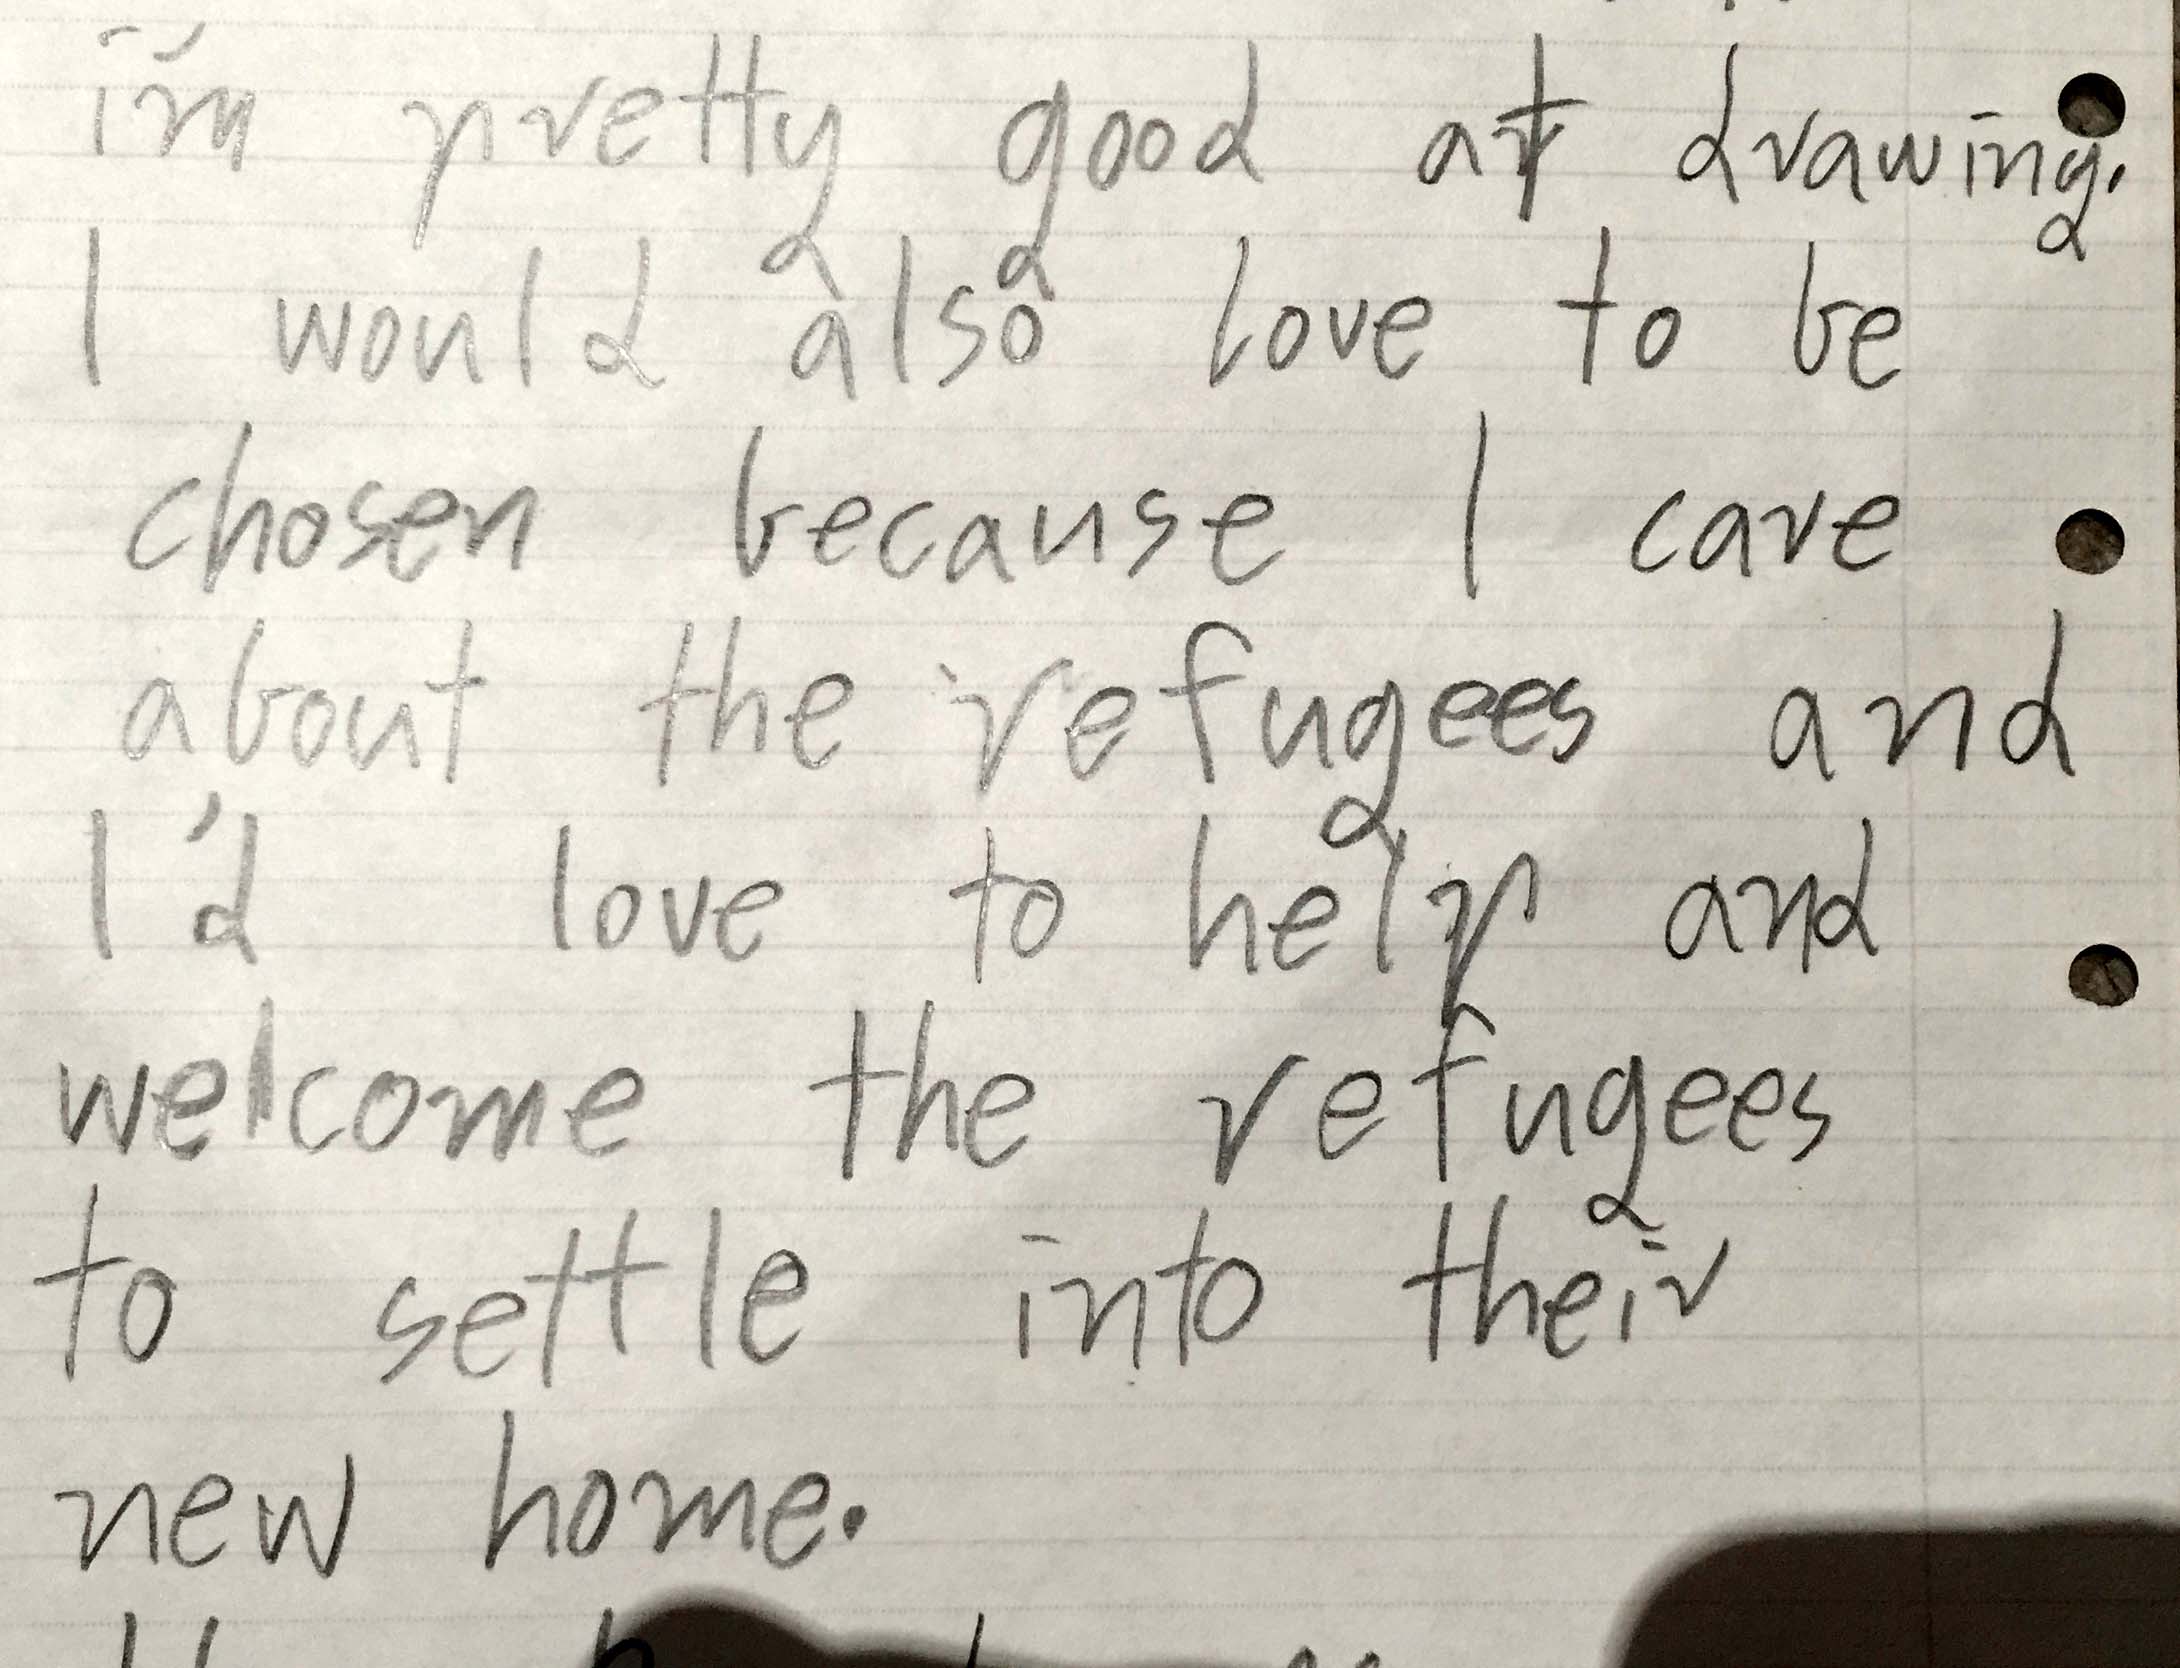 i'm pretty good at drawing.
I would also love to be
chosen because I care
about the refugees and
I'd love to help and
welcome the refugees
to settle into their
new home.